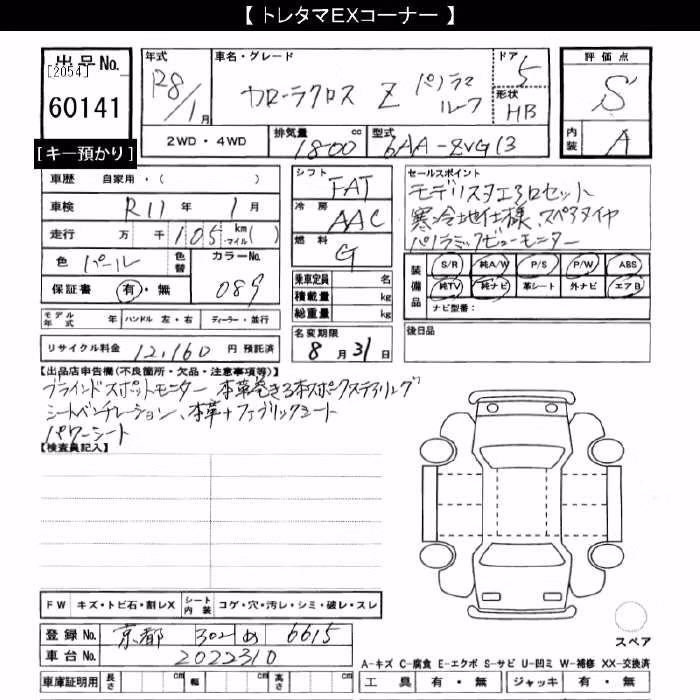 【 トレタマEXコーナー 】
出品No.
[2054]
60141
[キー預かり]
年式
R8/1月
車名・グレード
カローラクロス Z パノラマルーフ
ドア
5
形状
HB
評価点
S
内装
A
2WD・4WD
排気量
1800 cc
型式
6AA-ZVG13
車歴 自家用・( )
車検 R11年 1月
走行 万 千 105 km マイル( )
色 パール
色替
カラーNo.
089
保証書 有・無
シフト
FAT
冷房
AAC
燃料
G
乗車定員 名
積載量 kg
総重量 kg
セールスポイント
モデリスタエアロセット
寒冷地仕様、スペアタイヤ
パノラミックビューモニター
装備品
S/R 純A/W P/S P/W ABS
純TV 純ナビ 革シート 外ナビ エアB
ナビ型番:
モデル年式 年 ハンドル 左・右 ディーラー・並行
リサイクル料金 12,160 円 預託済
名変期限
8月31日
後日品
【出品店申告欄(不良箇所・欠品・注意事項等)】
ブラインドスポットモニター 本革巻き3本スポークステアリング
シートベンチレーション、本革+ファブリックシート
パワーシート
【検査員記入】
FW キズ・トビ石・割レX シート内装 コゲ・穴・汚レ・シミ・破レ・スレ
登録No. 京都 302 め 6615
車台No. 2022310
車庫証明用 長さ cm 幅 cm 高さ cm
スペア
A-キズ C-腐食 E-エクボ S-サビ U-凹ミ W-補修 XX-交換済
工具 有・無 ジャッキ 有・無